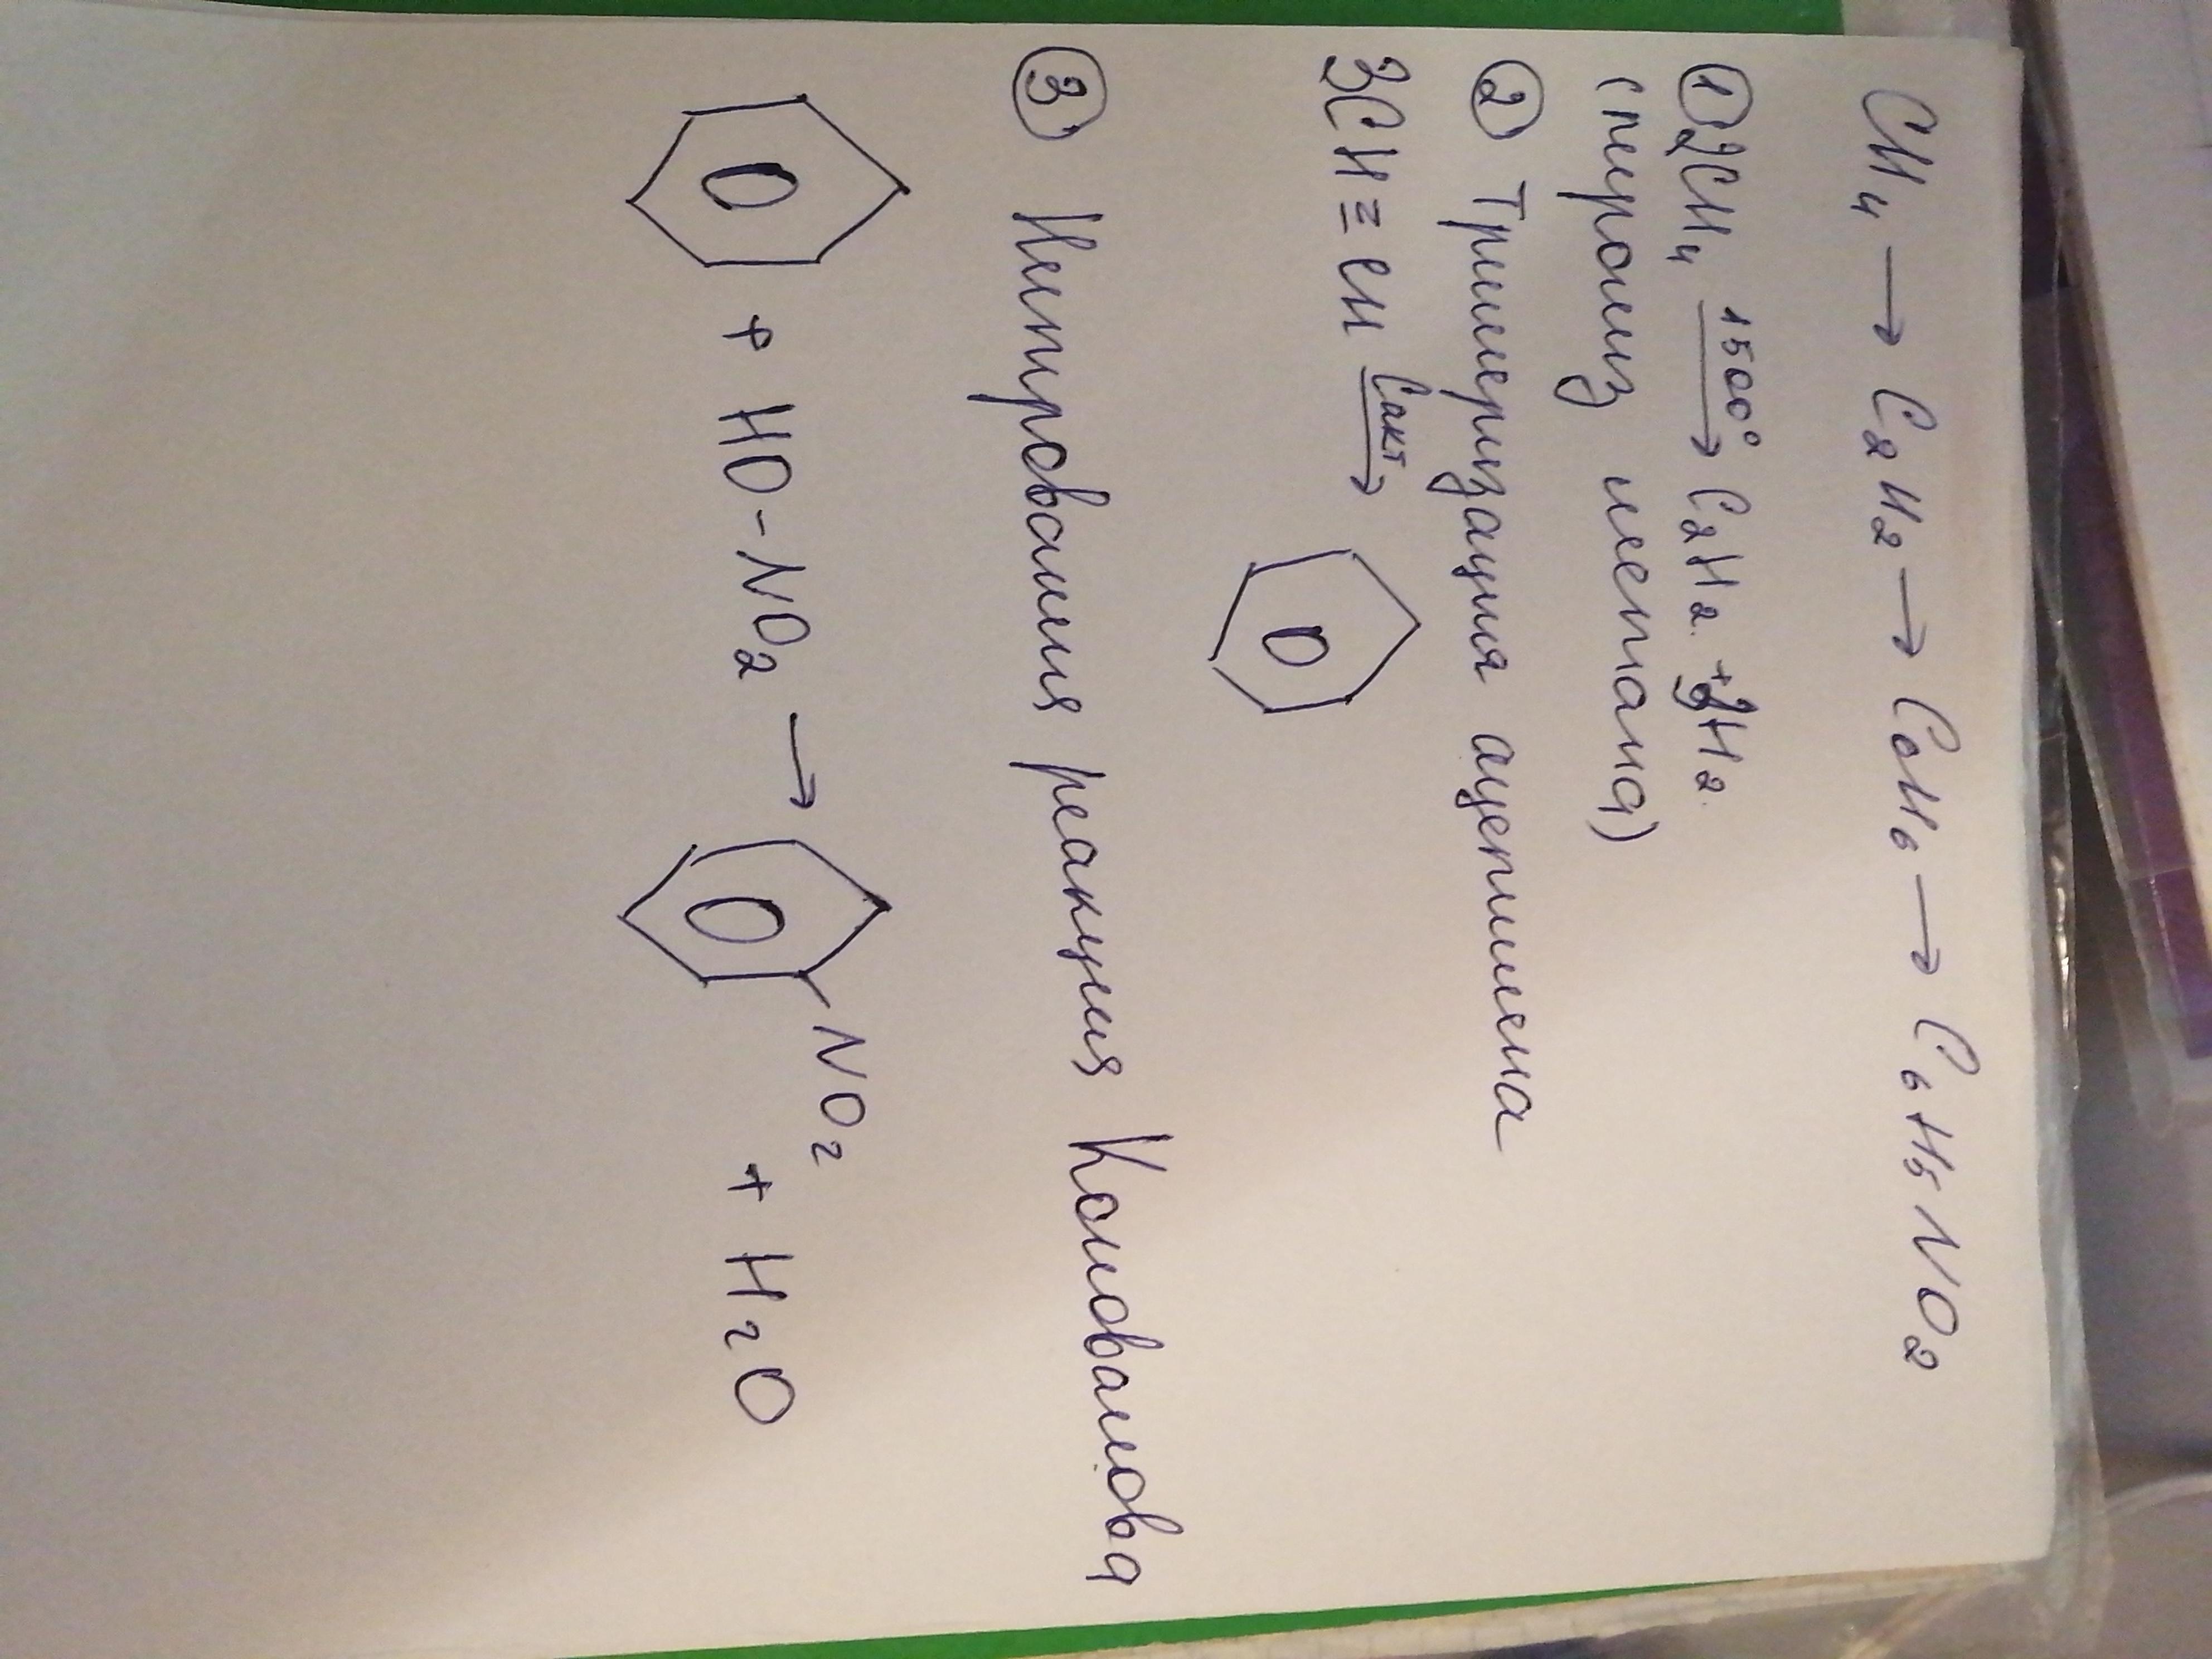 CH₄ → C₂H₂ → C₆H₆ → C₆H₅NO₂
① 2CH₄ 1500° → C₂H₂ + 3H₂
(пиролиз метана)
② Тримеризация ацетилена
3CH≡CH Cакт →
③ Нитрования реакция Коновалова
+ HO-NO₂ → NO₂ + H₂O